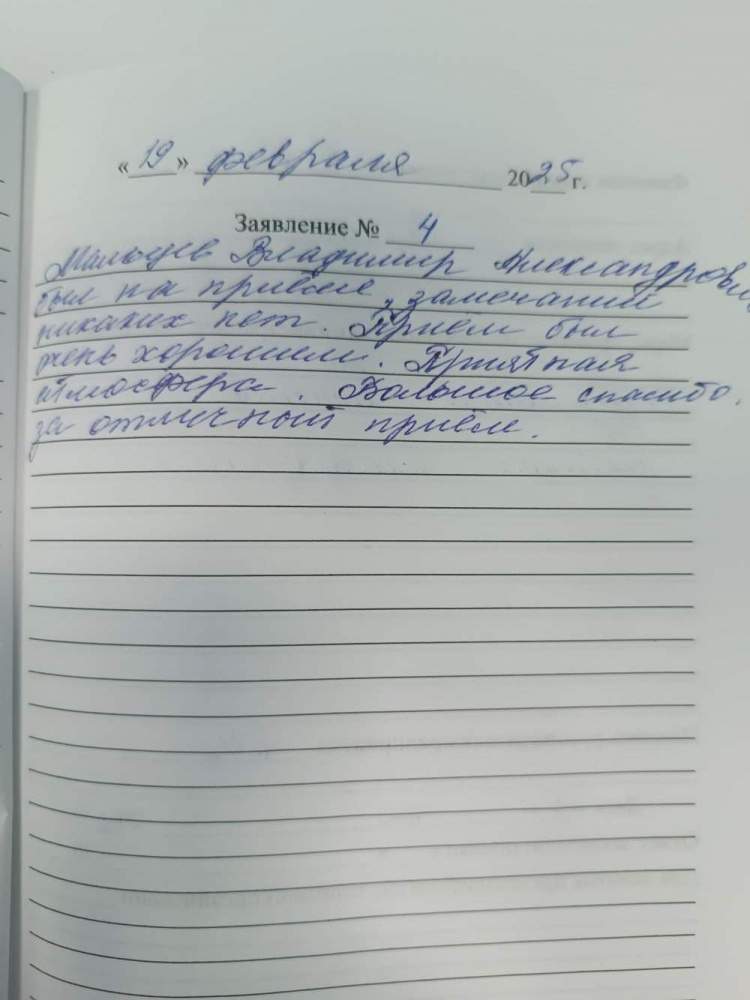 «19» февраля 2025 г.
Заявление № 4
Мальцев Владимир Александрович
был на приёме, замечаний
никаких нет. Приём был
очень хорошим. Приятная
атмосфера. Большое спасибо
за отличный приём.